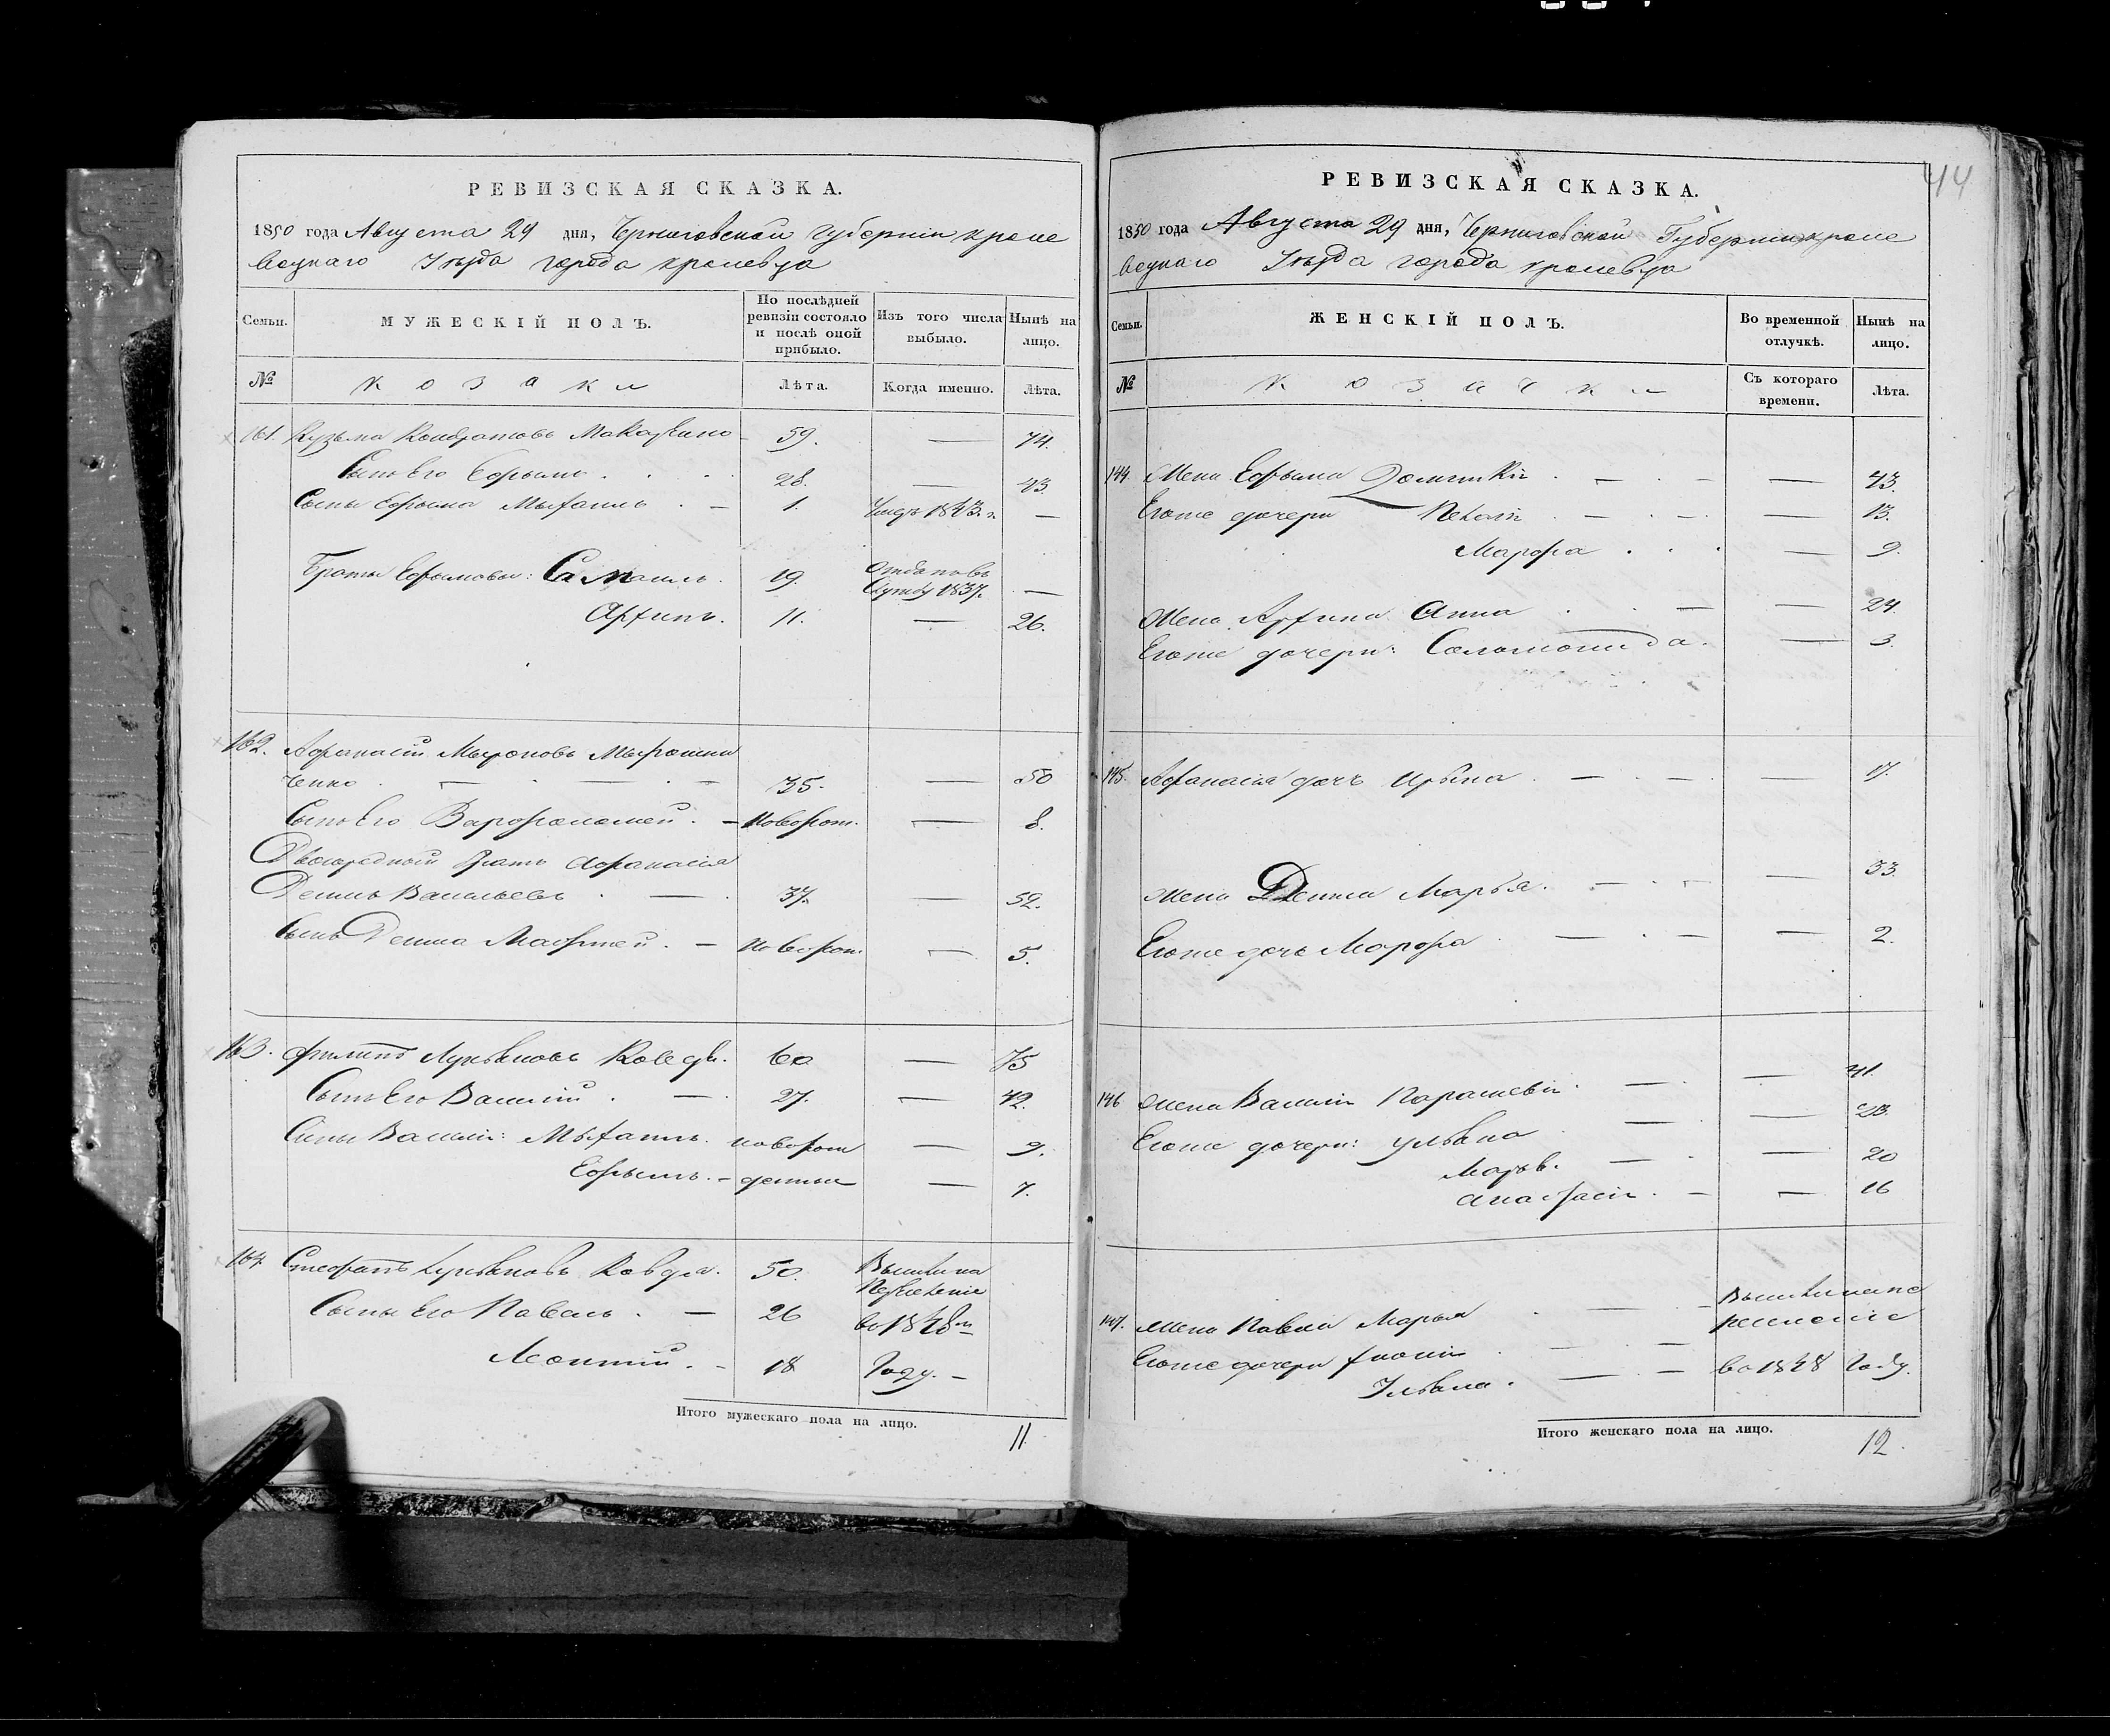 РЕВИЗСКАЯ СКАЗКА.
1850 года Августа 29 дня, Черниговской Губерніи Кроле
вецкаго Уѣзда города Кролевца
Семьи.
МУЖЕСКІЙ ПОЛЪ.
По послѣдней ревизіи состояло и послѣ оной прибыло.
Изъ того числа выбыло.
Нынѣ на лицо.
№
козаки
Лѣта.
Когда именно.
Лѣта.
161. Кузьма Кондратовъ 59. — 74.
Сынъ Его Ефрымъ . . . 28. — 43.
Сынъ Ефрыма Мыхаилъ . — 1. Умеръ 1843. г. —
Братья Ефрымовы: Самоилъ. 19. Отданъ въ
Службу 1837. —
Архипъ. 11. — 26.
162. Афанасій Мыроновъ Мырошни
ченко . — . — . — 35. — 50
Сынъ Его Варфоломей. — новорож. — 8.
Двоюродный братъ Афанасія
Демидъ Васильевъ . — . 37. — 52.
Сынъ Демида Матфей. — новорож. — 5.
163. Филипъ Лукьяновъ Коведя. 60 — 75
Сынъ Его Василій . — . 27. — 42.
Сыны Василія: Мыхаилъ. новорож — 9.
Ефрымъ. — денные — 7.
164. Стефанъ Лукьяновъ Ковдя. 50. Вышли на
Переселеніе
Сыны Его Павелъ . — 26 во 1848 м
Леонтій. — 18 Году. —
Итого мужескаго пола на лицо.
11
44
РЕВИЗСКАЯ СКАЗКА.
1850 года Августа 29 дня, Черниговской Губерніи Кроле
вецкаго Уѣзда города Кролевца
Семьи.
ЖЕНСКІЙ ПОЛЪ.
Во временной отлучкѣ.
Нынѣ на лицо.
№
козачки
Съ котораго времени.
Лѣта.
144. Жена Ефрыма Домникія . — . — — 43.
Егоже дочери . — . — . — 13.
Марфа . . . — 9.
Жена Архипа Анна . . — — 24
Егоже дочери: Соломонида. — 3.
145. Афанасія дочь Ирына . — . — — 17.
Жена Демида Марья. — . — — 33
Егоже дочь Марфа . — . — — 2.
146 Жена Василія Парасковія . — . — 41.
Егоже дочери: Ульяна . — — 23.
Марья. — . — 20
Анастасія . — — 16
147. Жена Павла Марья . — . — Вышли на пе
реселеніе
Егоже дочери . — . — во 1848 Году.
Ульяна . — . —
Итого женскаго пола на лицо.
12.